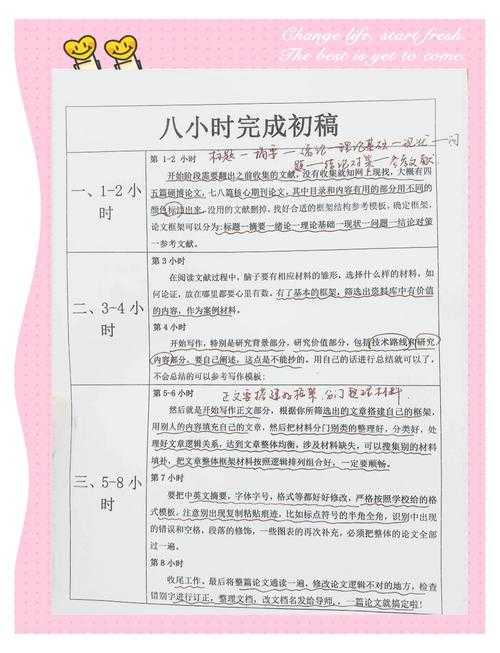 Change life, start fresh.
The best is yet to come.
八小时完成初稿
一、1-2 小
时
第 1-2 小时
标题—摘要—绪论—理论基础—现状—问
题—结论对策—参考文献
开始阶段需要翻出之前收集的文献，没有收集就知网上现找，大概有四
五篇硕博论文，七八篇核心期刊论文，其中目录和内容有用的部分用不同的
颜色标注出来，没用的文献删掉，找好合适的框架结构参考模板，确定框架，
论文框架可以分为：标题一摘要一绪论一理论基础一现状一问题一结论对策
一参考文献。
二、3-4 小
时
第 3 小时
在阅读文献过程中，脑子要有相应材料的雏形，选择什么样的材料，如
何论证，放在哪里都要心里有数。有了基本的框架，筛选出资料库中有价值
的内容，作为案例材料。
第 4 小时
开始写作，特别是研究背景部分，研究价值部分，包括技术路线和研究
内容部分，要自己阐述，这点是不能抄的。用自己的话进行总结就可以了，
不会总结的可以参考写作模板；
三、5-8 小
时
第 5-6 小时
正文要搭建好框架 分门整理材料
然后就是开始写作正文部分，根据你所筛选出的文章搭建自己的框架，
用别人的内容填充自己的文章，然后把材料分门别类的整理好，分类好，处
理好文章逻辑关系，达到文章整体均衡，涉及材料缺失，可以搜集别的材料
填补，把文章整体框架材料按照逻辑排列组合好，一定要顺畅。
第 7 小时
要把中英文摘要，字体字号，格式等都好好修改，严格按照学校给的格
式模板，注意别出现复制粘贴痕迹，比如标点符号的半角全角，识别中出现
的错误和空格，段落的修饰，一些图表的再次补充，必须把整体的论文全部
过一遍。
第 8 小时
收尾工作、最后将整篇论文通读一遍，修改论文逻辑不对的地方，检查
错别字进行订正，整理文档，改文档名发给导师，，一篇论文就搞定啦！